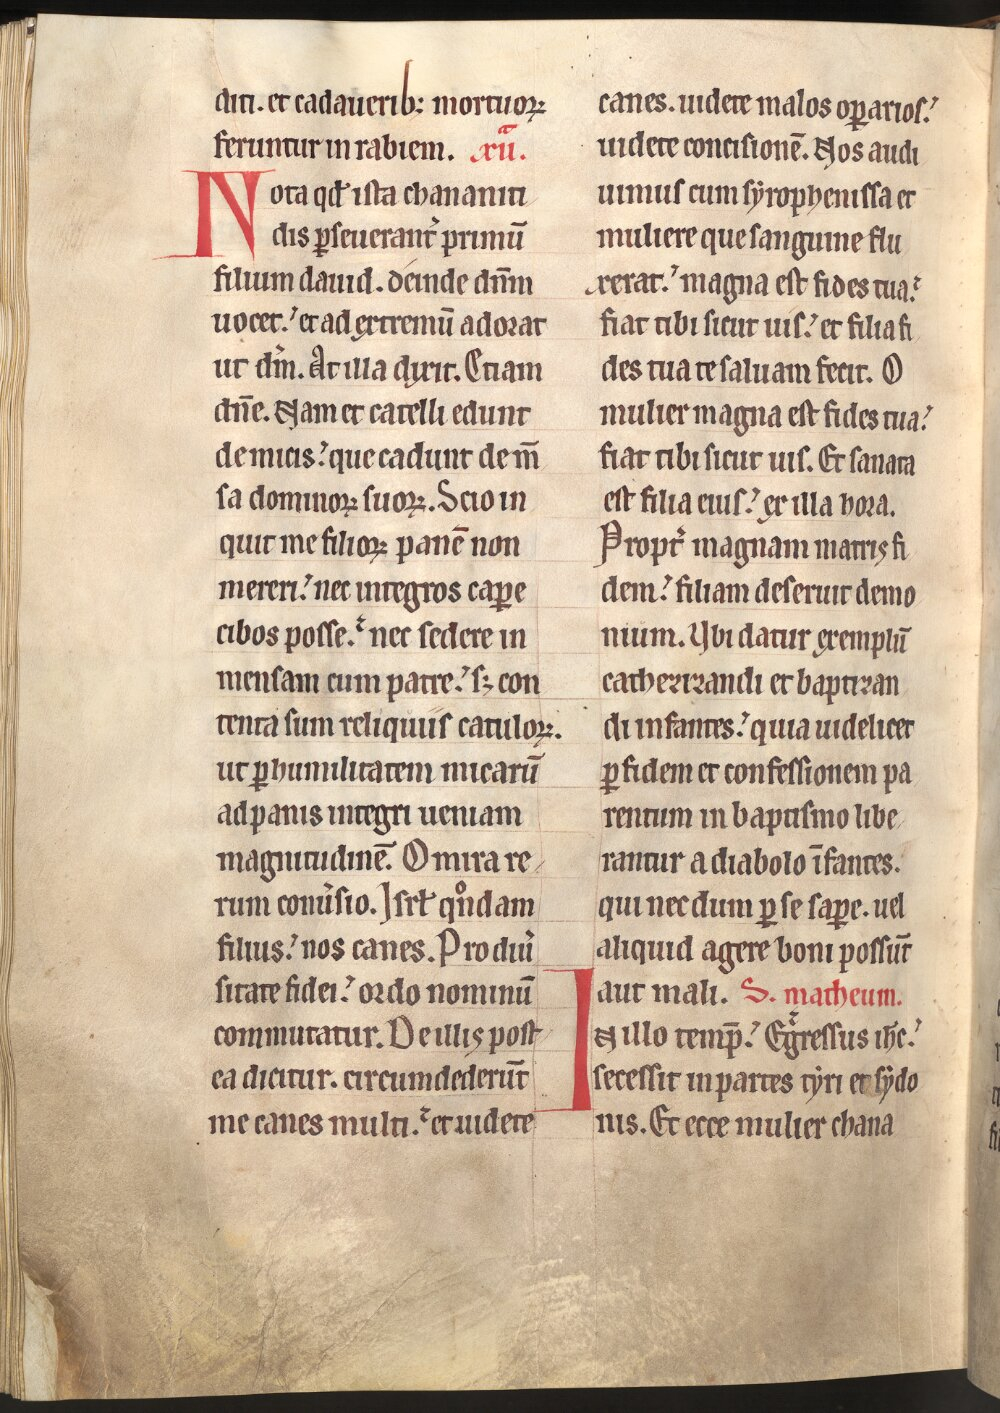 diti. et cadauerib; mortuoꝝ
feruntur in rabiem. xii͛.
Nota qđ ista chananiti
dis ꝑseuerant᷑ primū
filium dauid. deinde dn̄m
uocet.ʼ et ad extremū adorat
ut dm̄. At illa dixit. Etiam
dn̄e. Nam et catelli edunt
de micis.ʼ que cadunt de m̄
sa dominoꝝ suoꝝ. Scio in
quit me filioꝝ panē non
mereri.ʼ nec integros caꝑe
cibos posse.ʼ nec sedere in
mensam cum patre.ʼ sꝫ con
tenta sum reliquiis catuloꝝ.
ut ꝑ humilitatem micarū
ad panis integri ueniam
magnitudinē. O mira re
rum conu͛sio. Isrł qͦndam
filius.ʼ nos canes. Pro diu͛
sitate fidei.ʼ ordo nominū
commutatur. De illis post
ea dicitur. circumdederūt
me canes multi.ʼ et uidete
canes. uidete malos oꝑarios.ʼ
uidete concisionē. Nos audi
uimus cum sẏrophenissa et
muliere que sanguine flu
xerat.ʼ magna est fides tua.ʼ
fiat tibi sicut uis.ʼ et filia fi
des tua te saluam fecit. O
mulier magna est fides tua.ʼ
fiat tibi sicut uis. Et sanata
est filia eius.ʼ ex illa hora.
Propt͛ magnam matris fi
dem.ʼ filiam deseruit demo
nium. Ubi datur exemplū
catherizandi et baptizan
di infantes.ʼ quia uidelicet
ꝑ fidem et confessionem pa
rentum in baptismo libe
rantur a diabolo īfantes.
qui nec dum ꝑ se saꝑe. uel
aliquid agere boni possūt
aut mali. S. matheum.
IN illo temp̄.ʼ Eg͛ressus ih̄c.ʼ
secessit in partes tẏri et sẏdo
nis. Et ecce mulier chana